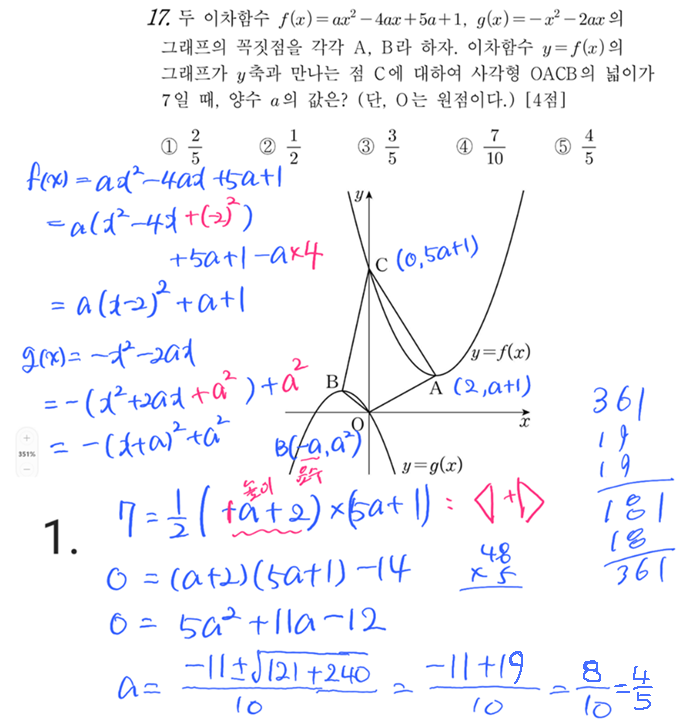 17. 두 이차함수 f(x)=ax²-4ax+5a+1, g(x)=-x²-2ax의
그래프의 꼭짓점을 각각 A, B라 하자. 이차함수 y=f(x)의
그래프가 y축과 만나는 점 C에 대하여 사각형 OACB의 넓이가
7일 때, 양수 a의 값은? (단, O는 원점이다.) [4점]
① 2/5 ② 1/2 ③ 3/5 ④ 7/10 ⑤ 4/5
f(x)=ax²-4ax+5a+1
=a(x²-4x+(-2)²)
+5a+1-a×4
=a(x-2)²+a+1
g(x)=-x²-2ax
=-(x²+2ax+a²)+a²
=-(x+a)²+a²
y
C (0,5a+1)
y=f(x)
B
A (2,a+1)
O
x
B(-a,a²)
y=g(x)
높이 음수
1.
7=1/2(+a+2)×(5a+1) : ◁+▷
0=(a+2)(5a+1)-14
0=5a²+11a-12
a=(-11±√(121+240))/10=(-11+19)/10=8/10=4/5
48
×5
361
19
19
181
18
361
+
351%
-